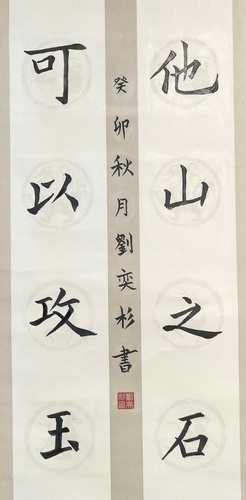 他山之石
可以攻玉
癸卯秋月劉奕杉書